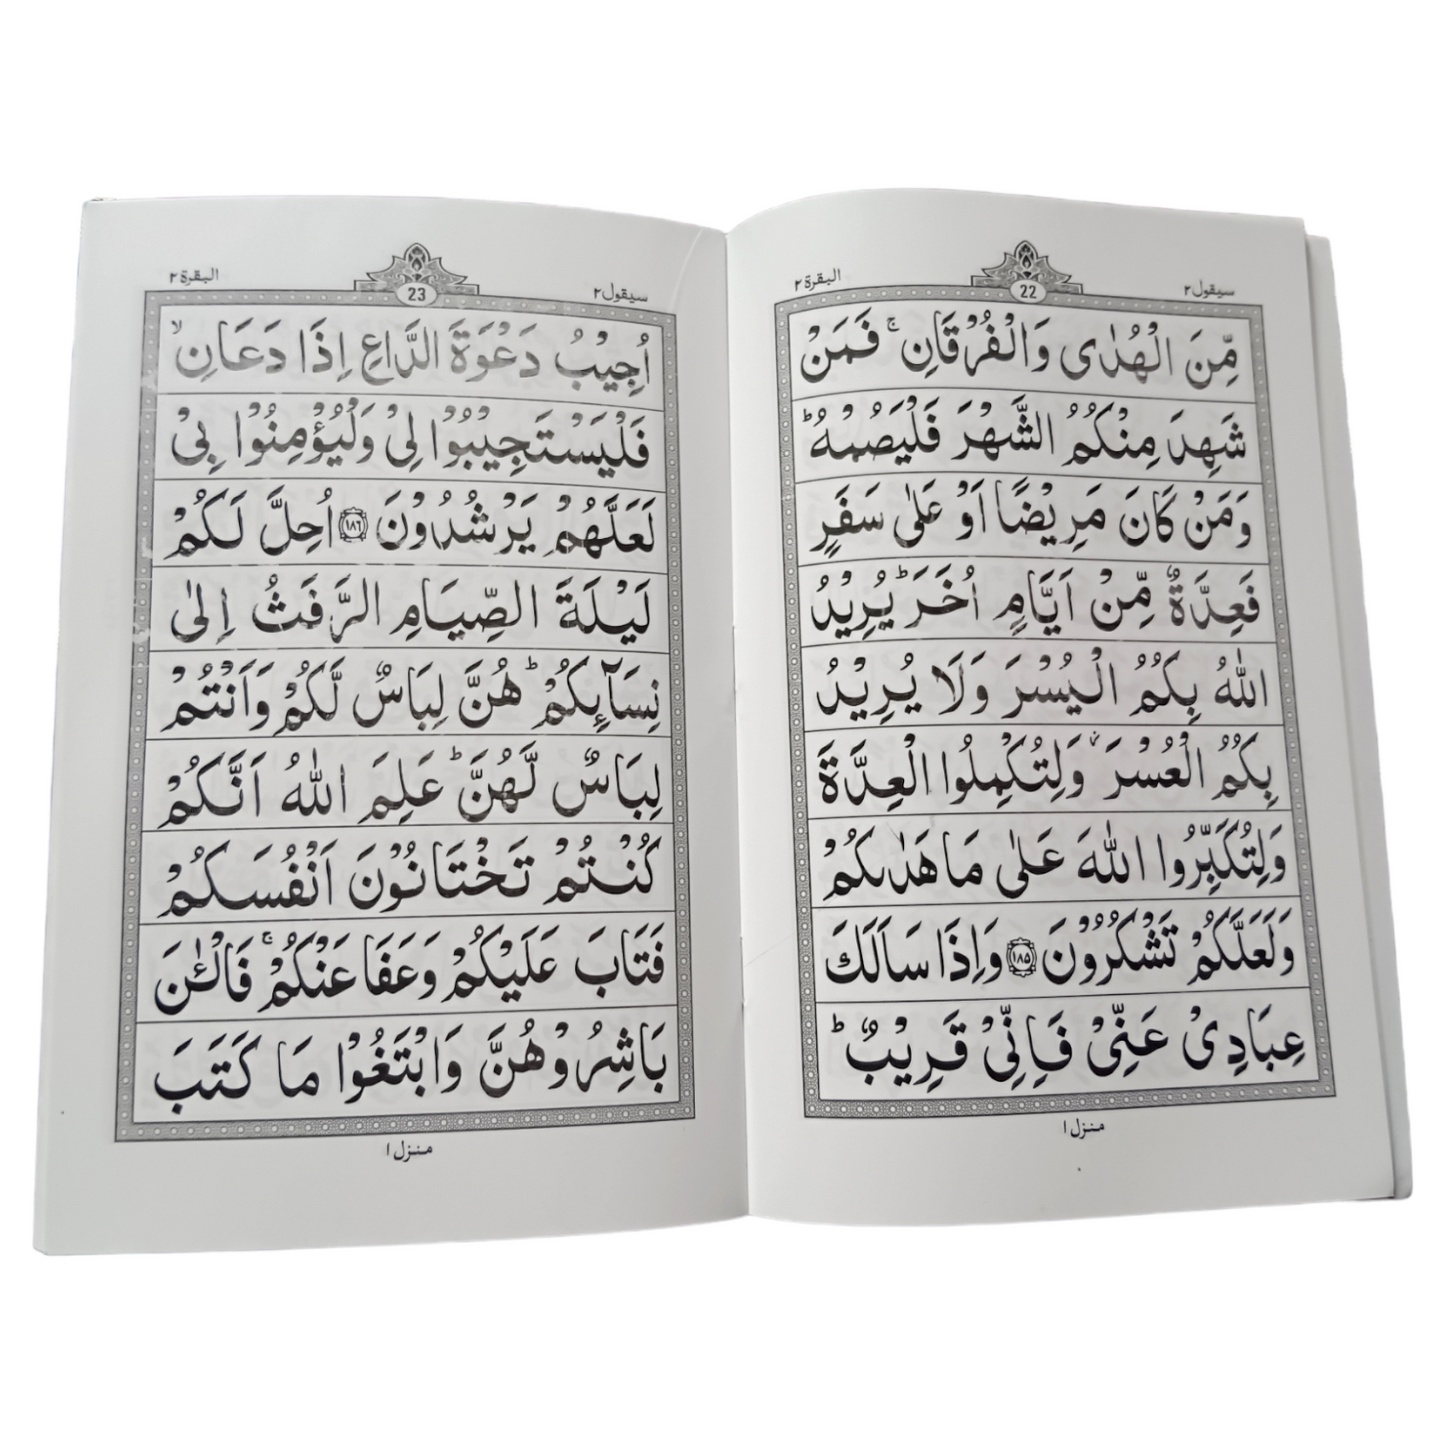 سيقول ٢
22
البقرة ٢
مِّنَ الْهُدٰى وَالْفُرْقَانِ ۚ فَمَنْ
شَهِدَ مِنْكُمُ الشَّهْرَ فَلْيَصُمْهُ ؕ
وَمَنْ كَانَ مَرِيْضًا اَوْ عَلٰى سَفَرٍ
فَعِدَّةٌ مِّنْ اَيَّامٍ اُخَرَ ؕ يُرِيْدُ
اللّٰهُ بِكُمُ الْيُسْرَ وَلَا يُرِيْدُ
بِكُمُ الْعُسْرَ ۫ وَلِتُكْمِلُوا الْعِدَّةَ
وَلِتُكَبِّرُوا اللّٰهَ عَلٰى مَا هَدٰىكُمْ
وَلَعَلَّكُمْ تَشْكُرُوْنَ ﴿١٨٥﴾ وَاِذَا سَاَلَكَ
عِبَادِيْ عَنِّيْ فَاِنِّيْ قَرِيْبٌ ؕ
منزل ١
سيقول ٢
23
البقرة ٢
اُجِيْبُ دَعْوَةَ الدَّاعِ اِذَا دَعَانِ ۙ
فَلْيَسْتَجِيْبُوْا لِيْ وَلْيُؤْمِنُوْا بِيْ
لَعَلَّهُمْ يَرْشُدُوْنَ ﴿١٨٦﴾ اُحِلَّ لَكُمْ
لَيْلَةَ الصِّيَامِ الرَّفَثُ اِلٰى
نِسَآئِكُمْ ؕ هُنَّ لِبَاسٌ لَّكُمْ وَاَنْتُمْ
لِبَاسٌ لَّهُنَّ ؕ عَلِمَ اللّٰهُ اَنَّكُمْ
كُنْتُمْ تَخْتَانُوْنَ اَنْفُسَكُمْ
فَتَابَ عَلَيْكُمْ وَعَفَا عَنْكُمْ ۚ فَالْـٰٔنَ
بَاشِرُوْهُنَّ وَابْتَغُوْا مَا كَتَبَ
منزل ١